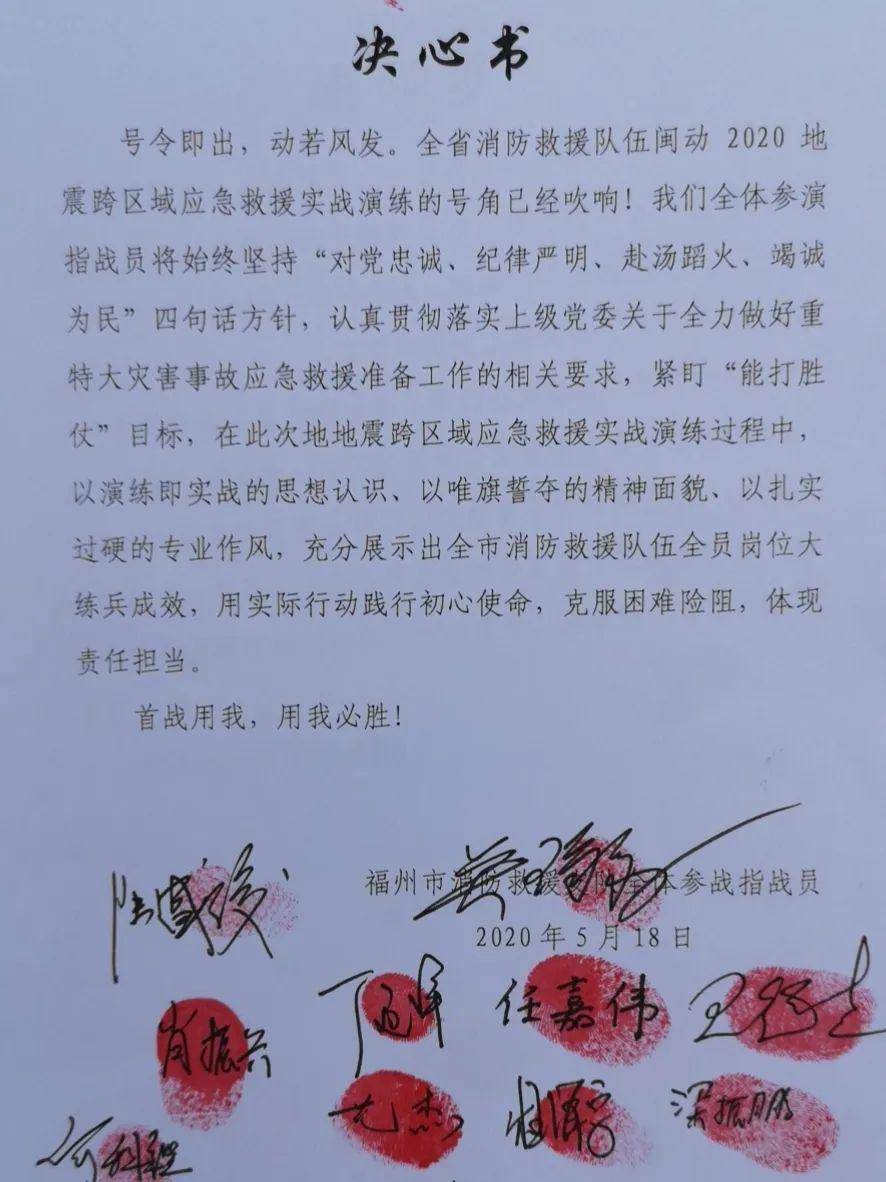 决心书
号令即出，动若风发。全省消防救援队伍闽动 2020 地
震跨区域应急救援实战演练的号角已经吹响！我们全体参演
指战员将始终坚持“对党忠诚、纪律严明、赴汤蹈火、竭诚
为民”四句话方针，认真贯彻落实上级党委关于全力做好重
特大灾害事故应急救援准备工作的相关要求，紧盯“能打胜
仗”目标，在此次地地震跨区域应急救援实战演练过程中，
以演练即实战的思想认识、以唯旗誓夺的精神面貌、以扎实
过硬的专业作风，充分展示出全市消防救援队伍全员岗位大
练兵成效，用实际行动践行初心使命，克服困难险阻，体现
责任担当。
首战用我，用我必胜！
福州市消防救援支队全体参战指战员
2020 年 5 月 18 日
任嘉伟
肖振兴